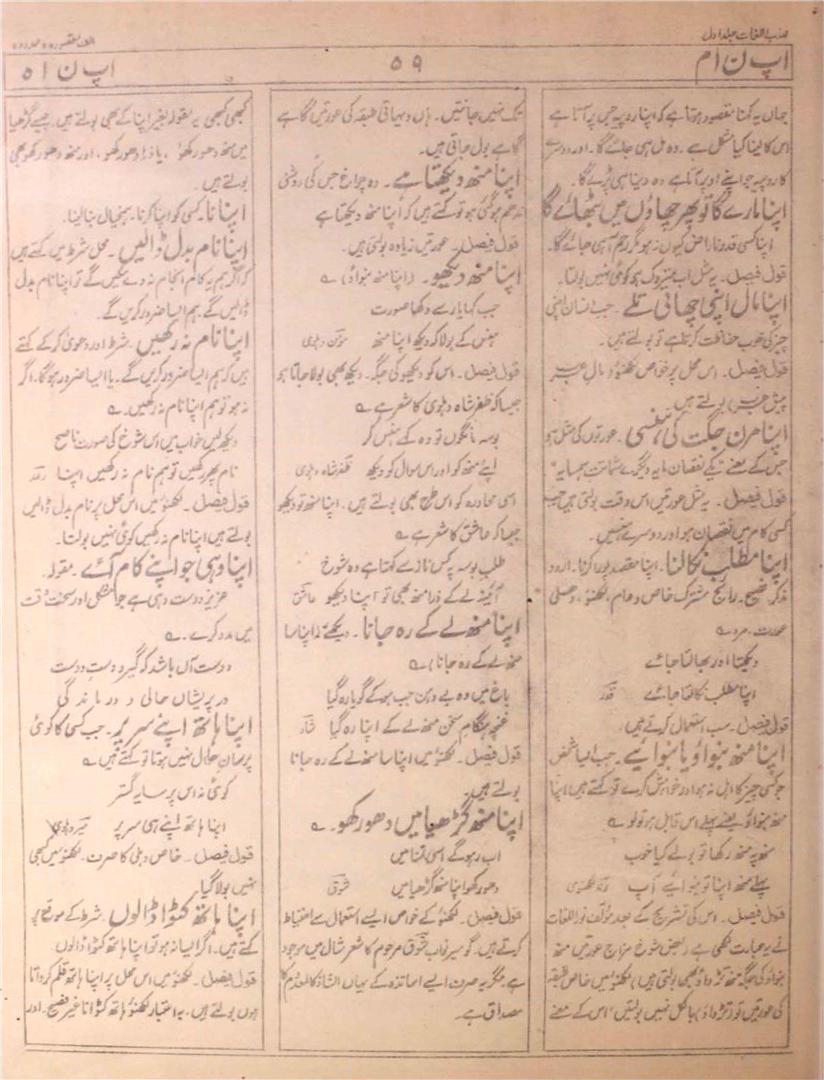 مہذب اللغات جلد اول
الف مقصورہ و ممدودہ
اپ ن ام
۵۹
اپ ن ا ہ
جہاں یہ کہنا مقصود ہوتا ہے کہ اپنا روپیہ جس پر آتا ہے
اس کا لینا کیا مشکل ہے ۔ وہ مل ہی جائے گا ۔ اور دوسرے
کا روپیہ جو اپنے اوپر آتا ہے وہ دینا ہی پڑے گا ۔
اپنا مارے گا تو پھر چھاؤں میں بٹھائے گا
اپنا کسی قدر ناراض کیوں نہ ہو مگر رحم آ ہی جائے گا ۔
قول فیصل ۔ یہ مثل اب متروک ہے کوئی نہیں بولتا ۔
اپنا مال اپنی چھاتی تلے ۔ جب انسان اپنی
چیز کی خوب حفاظت کرتا ہے تو بولتے ہیں ۔
قول فیصل ۔ اس محل پر خواص لکھنؤ (مال عرب
پیش عرب) بولتے ہیں
اپنا مرن جگت کی ہنسی ۔ عورتوں کی مثل ہے
جس کے معنے "یکے نقصان مایہ دیگرے شماتت ہمسایہ"
قول فیصل ۔ یہ مثل عورتیں اس وقت بولتی ہیں جب
کسی کام میں نقصان ہو اور دوسرے ہنسیں ۔
اپنا مطلب نکالنا ۔ اپنا مقصد پورا کرنا ۔ اردو
مذکر فصیح ۔ رائج مشترک خاص و عام ، لکھنؤ ، دہلی
عورت ، مرد ؎
دیکھتا اور بھالتا جائے
اپنا مطلب نکالتا جائے قدر
قول فیصل ۔ سب استعمال کرتے ہیں
اپنا منھ بنواؤ یا بنوائیے ۔ جب ایسا شخص
جو کسی چیز کا اہل نہ ہو اور خواہش کرے تو کہتے ہیں اپنا
منھ بنواؤ یعنے پہلے اس قابل ہو تو لو ؎
منھ پہ منھ رکھا تو بولے کیا خوب
پہلے منھ اپنا تو بنوائیے آپ رند لکھنوی
قول فیصل ۔ اس کی تشریح کے بعد مؤلف نور اللغات
نے یہ عبارت لکھی ہے (بعض شوخ مزاج عورتیں منھ
بنواؤ کی جگہ منھ تڑواؤ بھی بولتی ہیں) لکھنؤ میں خاص طبقہ
کی عورتیں تو (تڑواؤ) بالکل نہیں بولتیں اس کے معنے
تک نہیں جانتیں ۔ ہاں دیہاتی طبقہ کی عورتیں گاہے
گاہے بول جاتی ہیں ۔
اپنا منھ دیکھتا ہے ۔ وہ چراغ جس کی روشنی
مدھم ہو گئی ہو تو کہتے ہیں کہ اپنا منھ دیکھتا ہے
قول فیصل ۔ عورتیں زیادہ بولتی ہیں ۔
اپنا منھ دیکھو ۔ (اپنا منھ بنواؤ) ؎
جب کہا یارے دکھا صورت
ہنس کے بولا کہ دیکھ اپنا منھ مومن دہلوی
قول فیصل ۔ اس کو دیکھو کی جگہ ۔ دیکھ بھی بولا جاتا ہو
جیسا کہ ظفر شاہ دہلوی کا شعر ہے ؎
بوسہ مانگوں تو وہ کہے ہنس کر
اپنے منھ کو اور اس سوال کو دیکھ ظفر شاہ دہلوی
اسی محاورہ کو اس طرح بھی بولتے ہیں ۔ اپنا منھ تو دیکھو
جیسا کہ عاشق کا شعر ہے ؎
طلب بوسہ پہ کس ناز سے کہتا ہے وہ شوخ
آئینہ لے کے ذرا منھ بھی تو اپنا دیکھو عاشق
اپنا منھ لے کے رہ جانا ۔ دیکھئے (اپنا سا
منھ لے کے رہ جانا) ؎
باغ میں وہ بے دہن جب ہو کے گویا رہ گیا
غنچہ ہنگام سخن منھ لے کے اپنا رہ گیا شاد
قول فیصل ۔ لکھنؤ میں اپنا سا منھ لے کے رہ جانا
بولتے ہیں ۔
اپنا منھ گڑھیا میں دھو رکھو ۔ ؎
اب رہو گے اسی تمنا میں
دھو رکھو اپنا منھ گڑھیا میں شوق
قول فیصل ۔ لکھنؤ کے خواص ایسے استعمال سے احتیاط
کرتے ہیں ۔ گو میر نواب شوق مرحوم کا شعر مثال میں موجود
ہے مگر یہ صرف ایسے اساتذہ کے یہاں الشاذ کالمعدوم کا
مصداق ہے ۔
کبھی کبھی یہ مقولہ بغیر اپنا کے بھی بولتے ہیں ۔ جیسے گڑھیا
میں منھ دھو رکھو ، یا ذرا دھو رکھو ، اور منھ دھو رکھو بھی
بولتے ہیں ۔
اپنانا ۔ کسی کو اپنا کرنا ۔ ہم خیال بنا لینا ۔
اپنا نام بدل ڈالیں ۔ محل شرط میں کہتے ہیں
کہ اگر ہم یہ کام انجام نہ دے سکیں گے تو اپنا نام بدل
ڈالیں گے ۔ ہم ایسا ضرور کریں گے ۔
اپنا نام نہ رکھیں ۔ شرط اور دعویٰ کر کے کہتے
ہیں کہ ہم ایسا ضرور کریں گے ۔ یا ایسا ضرور ہو گا ، اگر
نہ ہو تو ہم اپنا نام نہ رکھیں ۔ ؎
دیکھ لیں خواب میں اس شوخ کی صورت ناصح
نام پھر رکھیں تو ہم نام نہ رکھیں اپنا رعد
قول فیصل ۔ لکھنؤ میں اس محل پر نام بدل ڈالیں
بولتے ہیں اپنا نام نہ رکھیں کوئی نہیں بولتا ۔
اپنا وہی جو اپنے کام آئے ۔ مقولہ ۔
عزیز دوست وہی ہے جو مشکل اور سخت وقت
میں مدد کرے ۔ ؎
دوست آں باشد کہ گیرد دست دوست
در پریشاں حالی و درماندگی
اپنا ہاتھ اپنے سر پر ۔ جب کسی کا کوئی
پرسان حال نہیں ہوتا تو کہتے ہیں ؎
کوئی نہ اس پر سایہ گستر
اپنا ہاتھ اپنے ہی سر پر میر دہلوی
قول فیصل ۔ خاص دہلی کا صرف ۔ لکھنؤ میں کبھی
نہیں بولا گیا ۔
اپنا ہاتھ کٹوا ڈالوں ۔ شرط کے موقع پر
کہتے ہیں ۔ اگر ایسا نہ ہو تو اپنا ہاتھ کٹوا ڈالوں
قول فیصل ۔ لکھنؤ میں اس محل پر اپنا ہاتھ قلم کرواتا
ہوں بولتے ہیں ۔ بہ اعتبار لکھنؤ ہاتھ کٹوانا غیر فصیح ۔ اور